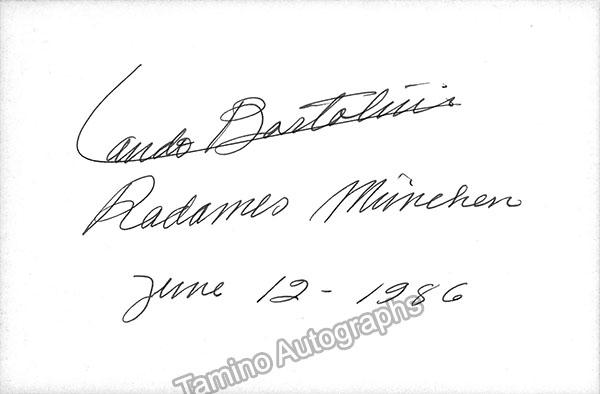 Lando Bartolini
Radames München
June 12 - 1986
Tamino Autographs